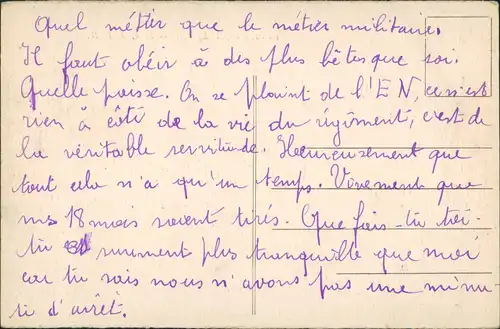 Quel métier que le métier militaire.
Il faut obéir à des plus bêtes que soi.
Quelle poisse. On se plaint de l'EN, ce n'est
rien à côté de la vie du régiment, c'est de
la véritable servitude. Heureusement que
tout cela n'a qu'un temps. Vivement que
mes 18 mois soient tirés. Que fais-tu toi-
tu surement plus tranquille que moi
car tu sais nous n'avons pas une minu-
te d'arrêt.